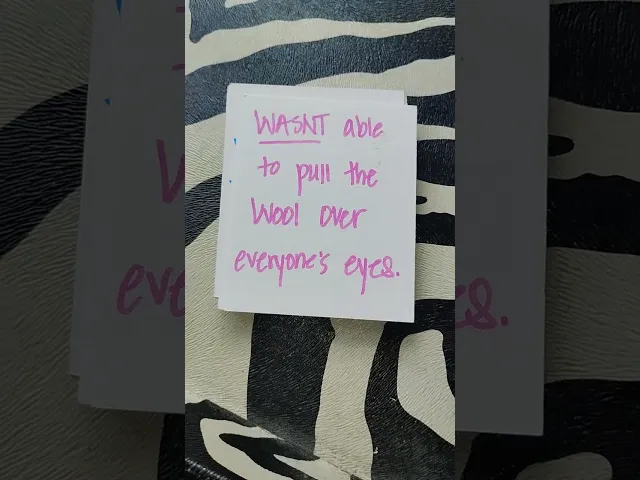 WASNT able
to pull the
Wool over
everyone's eyes.